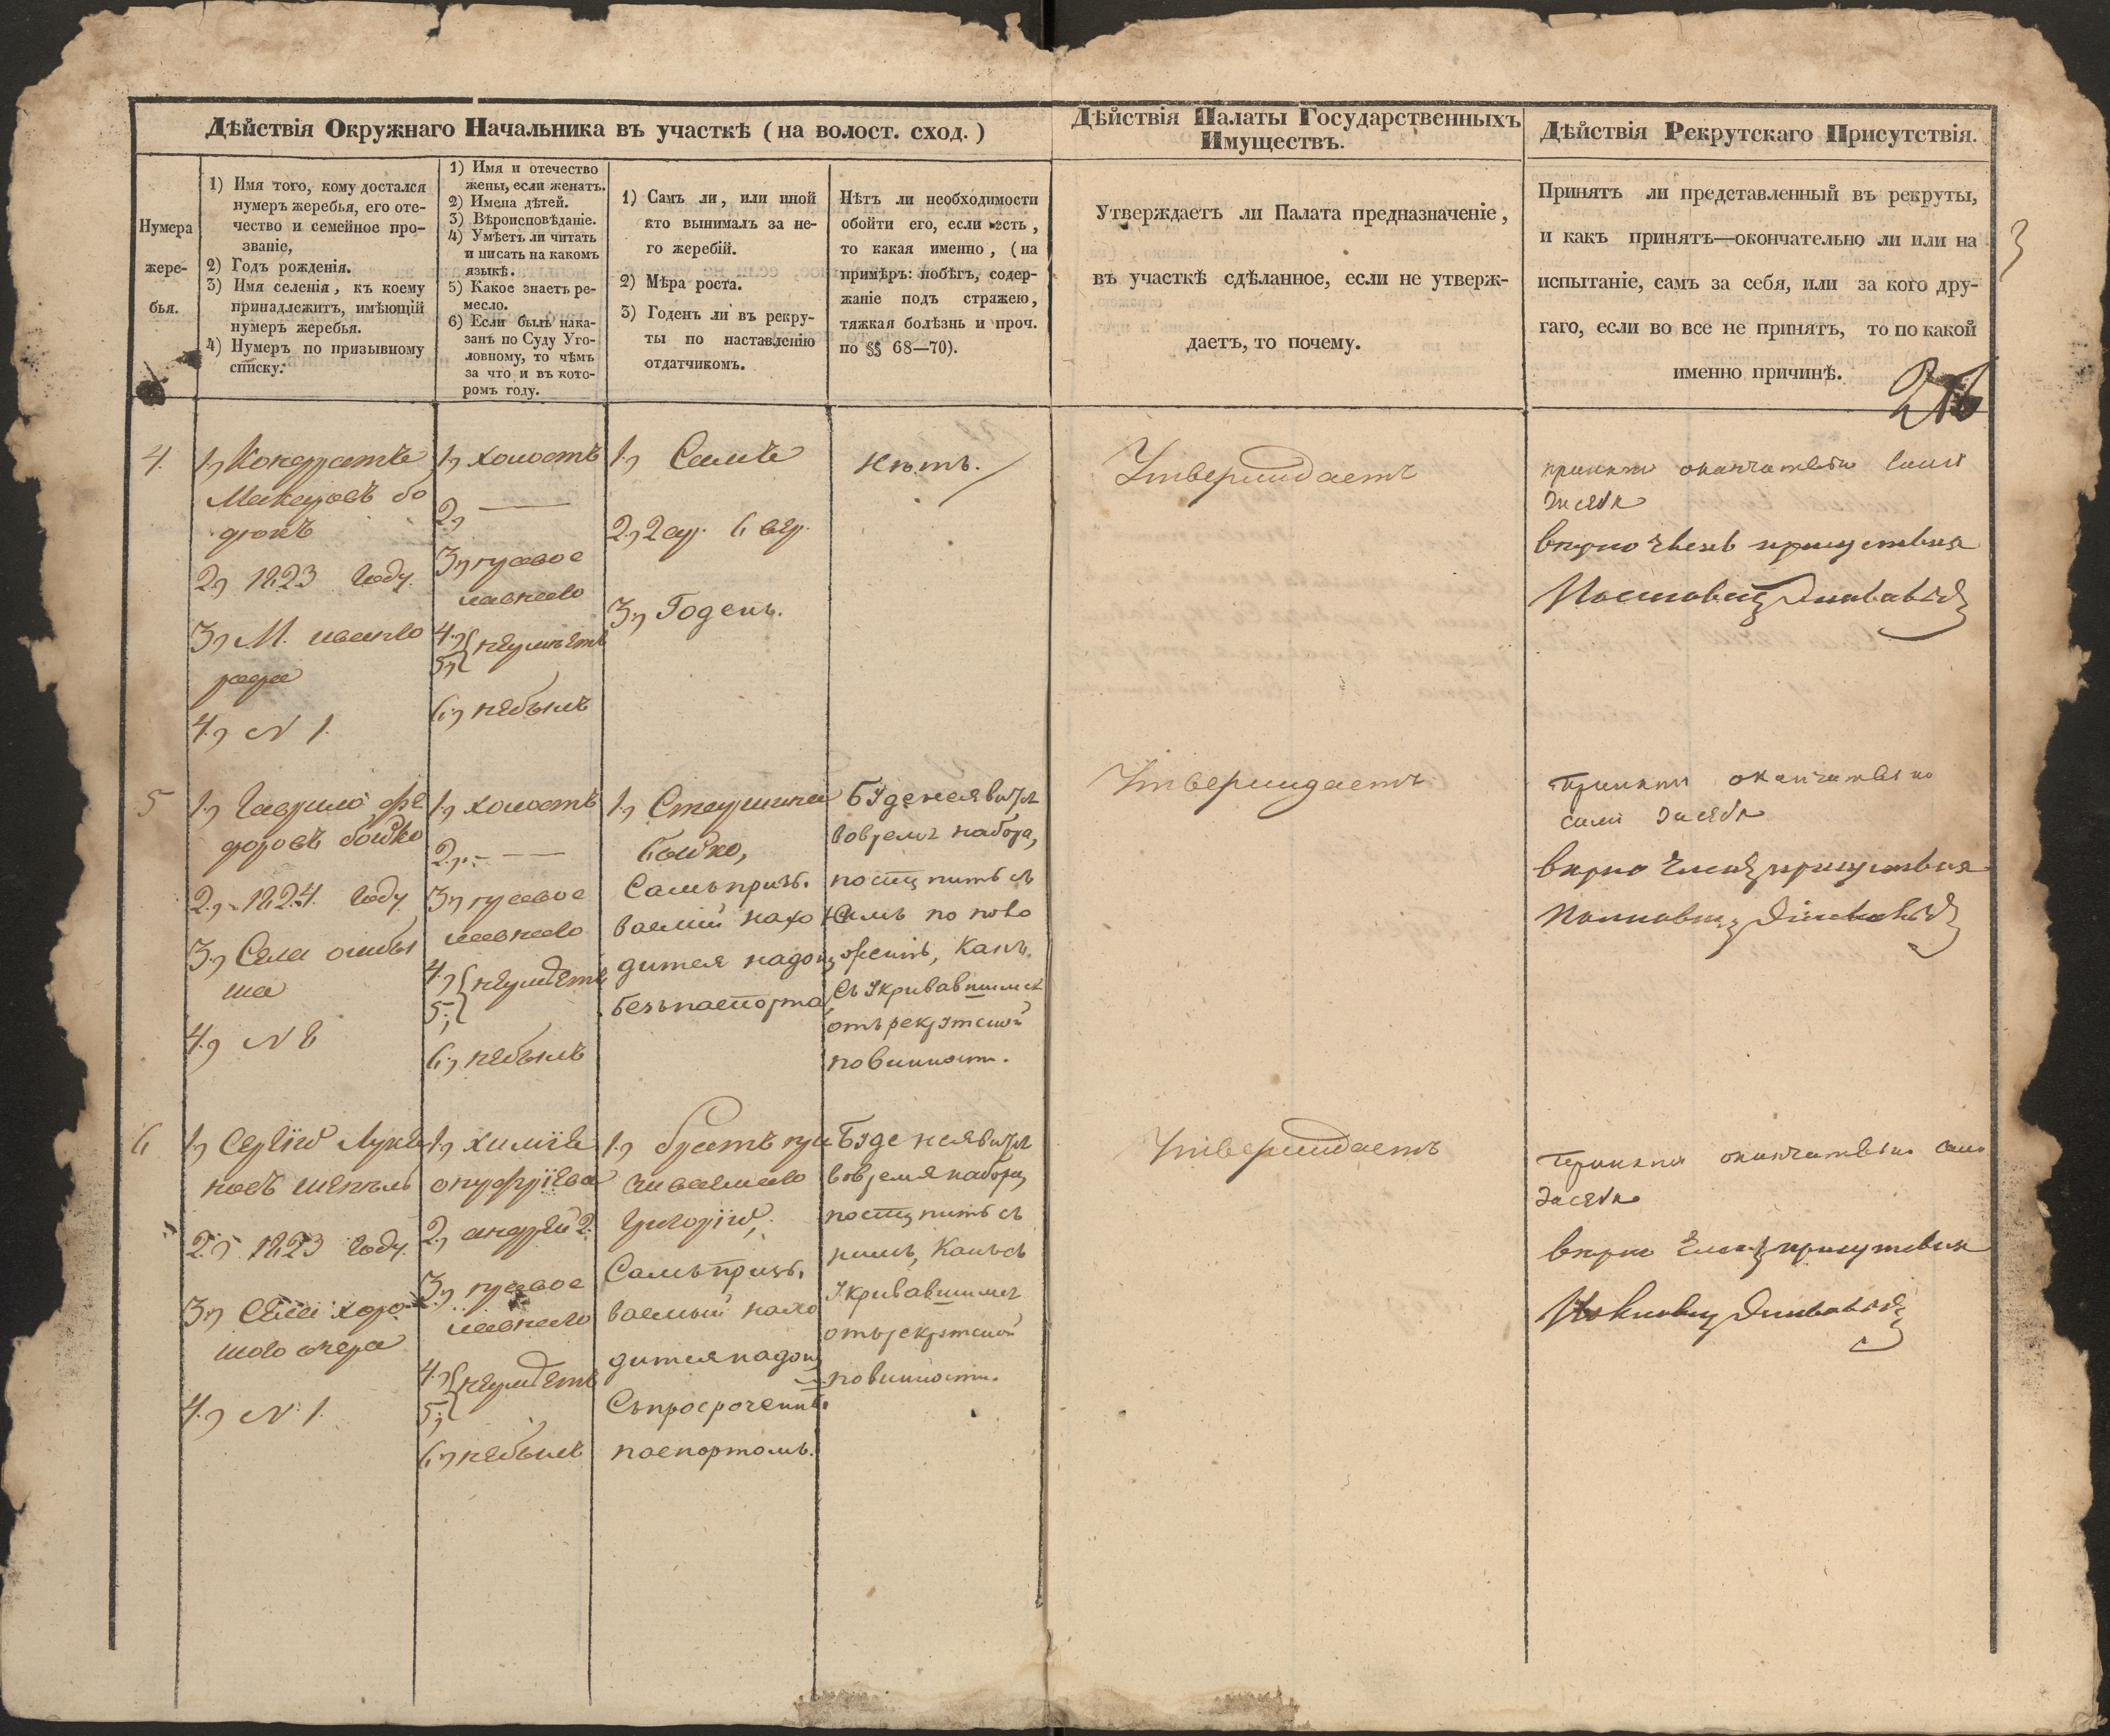 Дѣйствія Окружнаго Начальника въ участкѣ (на волост. сход.)
Нумера
жере-
бья.
1) Имя того, кому достался
нумеръ жеребья, его оте-
чество и семейное про-
званіе,
2) Годъ рожденія.
3) Имя селенія, къ коему
принадлежитъ, имѣющій
нумеръ жеребья.
4) Нумеръ по призывному
списку.
1) Имя и отечество
жены, если женатъ.
2) Имена дѣтей.
3) Вѣроисповѣданіе.
4) Умѣетъ ли читать
и писать на какомъ
языкѣ.
5) Какое знаетъ ре-
месло.
6) Если былъ нака-
занъ по Суду Уго-
ловному, то чѣмъ
за что и въ кото-
ромъ году.
1) Самъ ли, или иной
кто вынималъ за не-
го жеребій.
2) Мѣра роста.
3) Годенъ ли въ рекру-
ты по наставленію
отдатчикомъ.
Нѣтъ ли необходимости
обойти его, если есть,
то какая именно, (на
примѣръ: побѣгъ, содер-
жаніе подъ стражею,
тяжкая болѣзнь и проч.
по §§ 68—70).
Дѣйствія Палаты Государственныхъ
Имуществъ.
Утверждаетъ ли Палата предназначеніе,
въ участкѣ сдѣланное, если не утверж-
даетъ, то почему.
Дѣйствія Рекрутскаго Присутствія.
Принятъ ли представленный въ рекруты,
и какъ принятъ—окончательно ли или на
испытаніе, самъ за себя, или за кого дру-
гаго, если во все не принятъ, то по какой
именно причинѣ.
3
4.
1, Кондратъ
Макаровъ бо
дюкъ
2, 1823 году.
3, М. ивангo
рода
4, N 1.
1, холостъ
2, —
3, православнаго
4,
5, неумѣетъ
6, небылъ
1, Самъ
2, 2 ар. 6 вер.
3, Годенъ.
нѣтъ.
Утверждаетъ
принятъ окончательно самъ
за себя
вѣрно членъ присутствія
5
1, Гаврило фе
доровъ бойко
2, 1824 году
3, Села
4, N 8
1, холостъ
2, —
3, православнаго
4,
5, неумѣетъ
6, небылъ
1, Старшина
бойко,
Самъ призы.
ваемый нахо
дится на дону
безъ паспорта
Буде неявится
вовремя набора,
поступить съ
нимъ по поло
женію, какъ
съ укривавшимся
отъ рекрутской
повинности.
Утверждаетъ
Принятъ окончательно
самъ за себя
вѣрно членъ присутствія
6
1, Сергій Лукья
новъ
2, 1823 году.
3, Села хоро
шого озера
4, N 1.
1,
онуфріева
2, андрей 2.
3, православнаго
4,
5, неумѣетъ
6, небылъ
1, братъ при
зиваемаго
Григорій,
Самъ призы.
ваемый нахо
дится на дону
съ просроченны.
паспортомъ.
Буде неявится
вовремя набора
поступить съ
нимъ, какъ съ
укривавшимся
отъ рекрутской
повинности.
Утверждаетъ
Принятъ окончательно самъ
за себя
вѣрно членъ присутствія